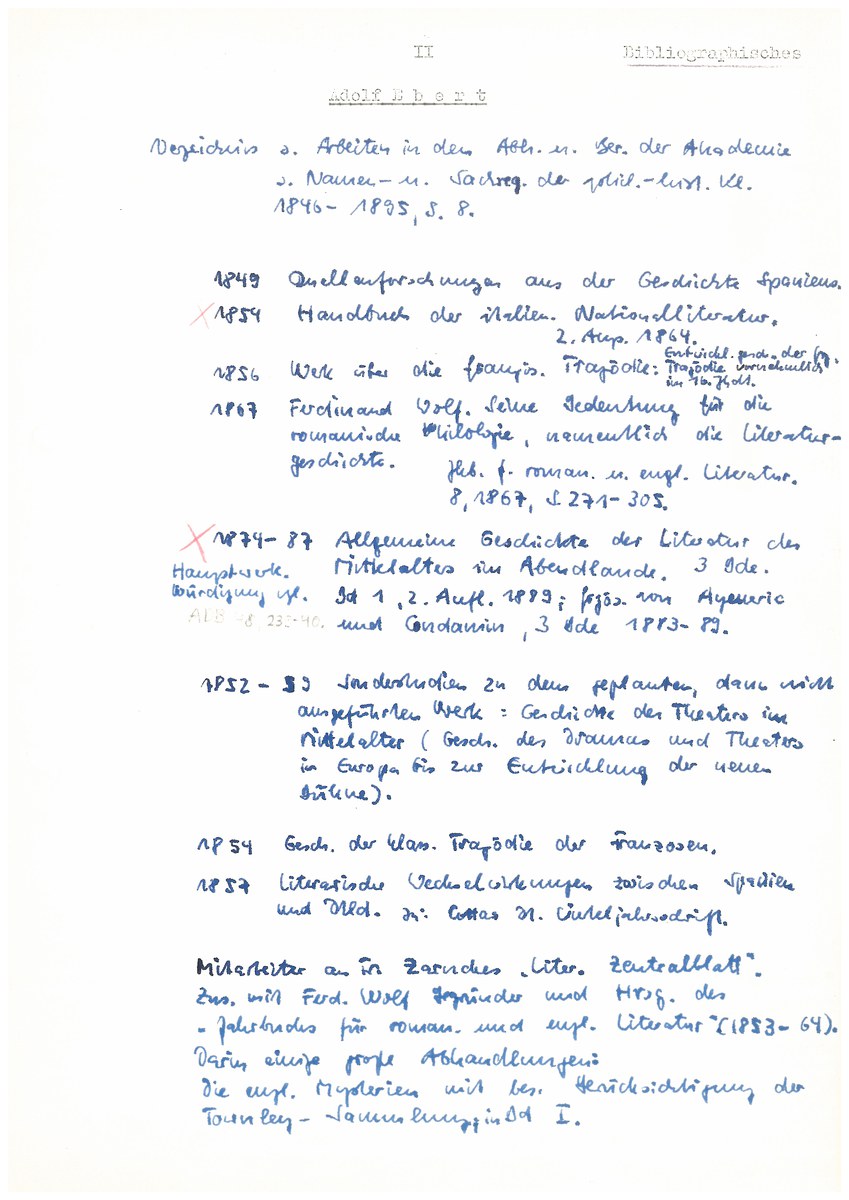 II Bibliographisches
Adolf Ebert
Verzeichnis s. Arbeiten in den Abh. u. Ber. der Akademie
s. Namen- u. Sachreg. der philol.-hist. Kl.
1846-1895, S. 8.
1849 Quellenforschungen aus der Geschichte Spaniens.
1854 Handbuch der italien. Nationalliteratur.
2. Ausg. 1864.
1856 Werk über die französ. Tragödie: Entwickl.gesch. der frz.
Tragödie vornehmlich
im 16. Jhdt.
1867 Ferdinand Wolf. Seine Bedeutung für die
romanische Philologie, namentlich die Literatur-
geschichte.
Jhb. f. roman. u. engl. Literatur.
8, 1867, S. 271-305.
1874-87 Allgemeine Geschichte der Literatur des
Hauptwerk. Mittelalters im Abendlande. 3 Bde.
Würdigung vgl. Bd 1, 2. Aufl. 1889; frzös. von Aymeric
ADB 48, 232-40. und Condamin, 3 Bde 1883-89.
1852-59 Sonderstudien zu dem geplanten, dann nicht
ausgeführten Werk: Geschichte des Theaters im
Mittelalter (Gesch. des Dramas und Theaters
in Europa bis zur Entwicklung der neuen
Bühne).
1854 Gesch. der klass. Tragödie der Franzosen.
1857 Literarische Wechselwirkungen zwischen Spanien
und Dtld. in: Cottas Dt. Vierteljahrsschrift.
Mitarbeiter an Fr. Zarnckes „Liter. Zentralblatt".
Zus. mit Ferd. Wolf Begründer und Hrsg. des
„Jahrbuchs für roman. und engl. Literatur" (1853-64).
Darin einige große Abhandlungen:
Die engl. Mysterien mit bes. Berücksichtigung der
Townley-Sammlung; in Bd I.